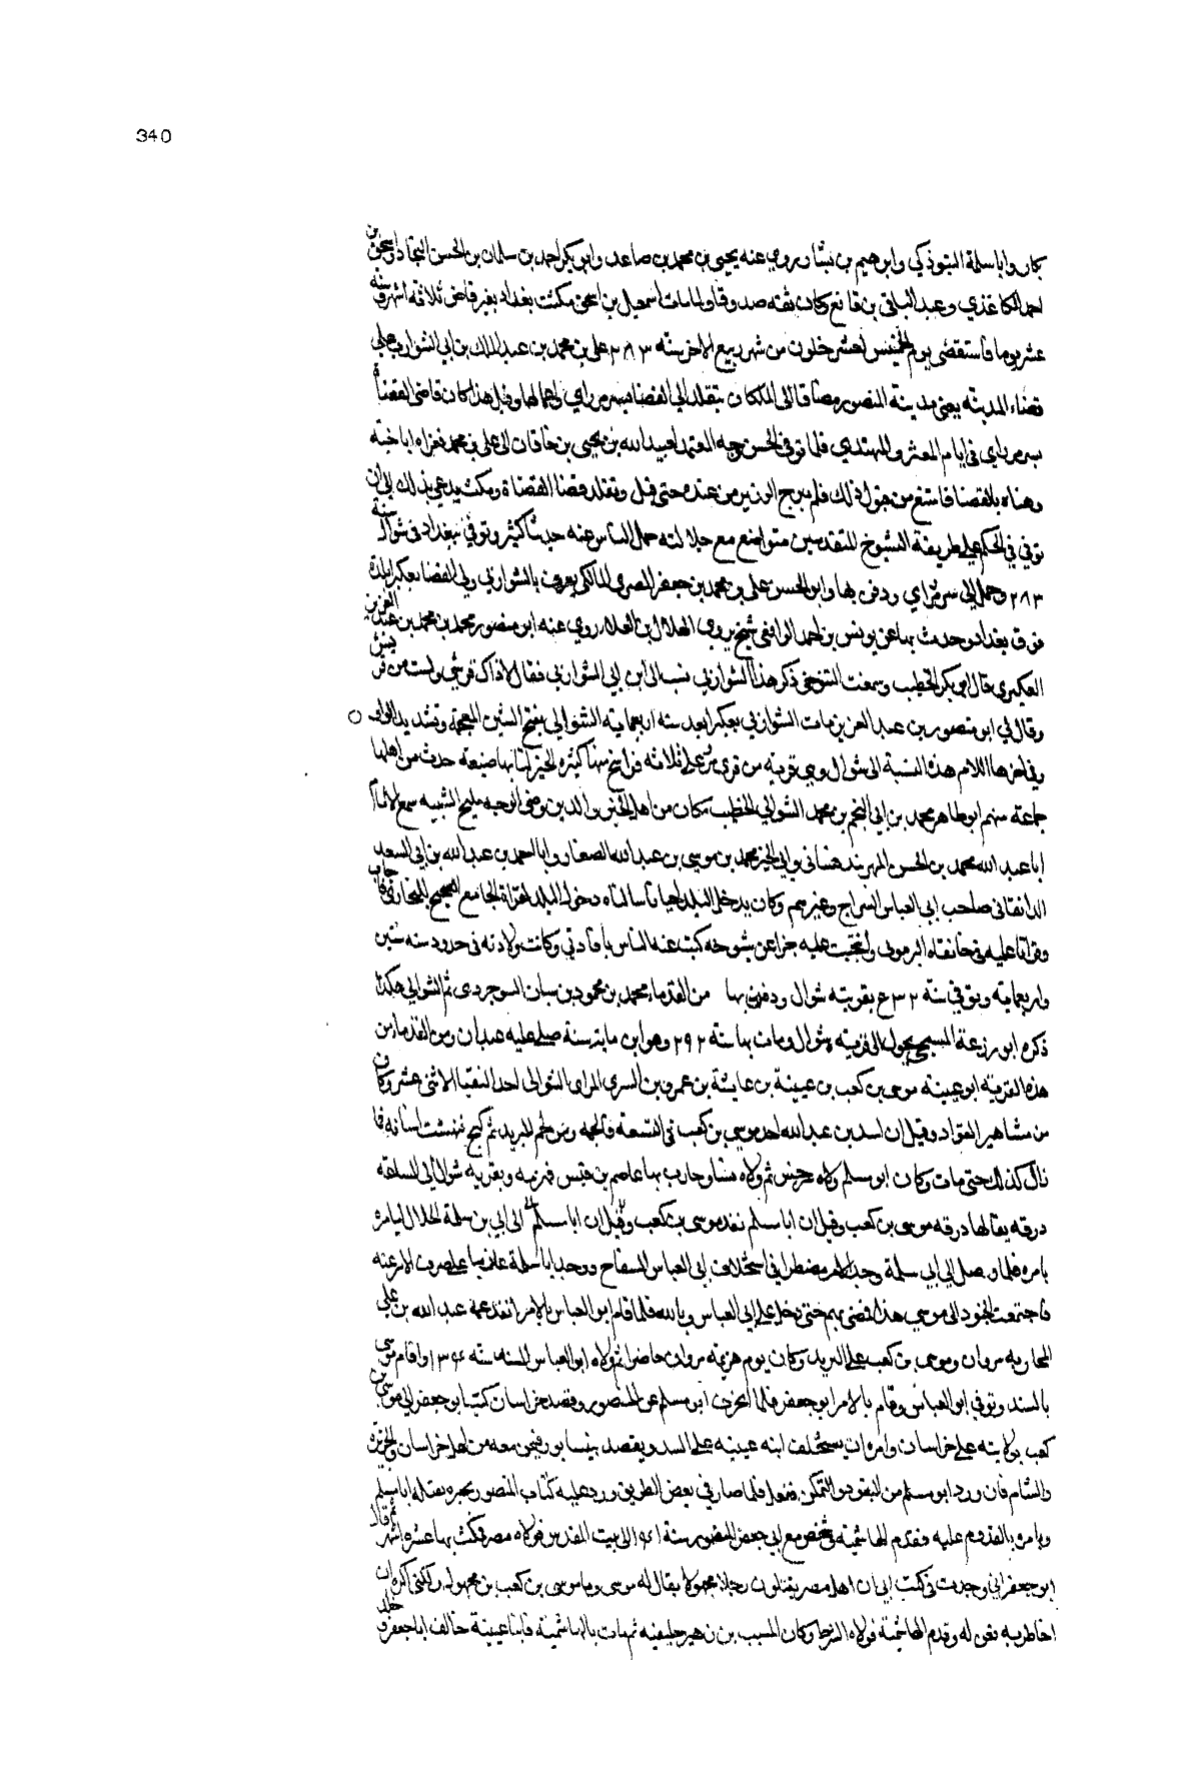 340
بكار وابا سلمة التبوذكي وابرهيم بن بشار روي عنه يحيى بن محمد بن صاعد وابو بكر احمد بن سلمان بن الحسن النجاد واسحق بن
احمد الكاغذي وعبد الباقي بن قانع وكان ثقة صدوقا ولما مات اسمعيل بن اسحق مكثت بغداد بغير قاض ثلاثة اشهر وستة
عشر يوما فاستقضى يوم الخميس لعشر خلون من شهر ربيع الاخر سنه ٢٨٣ على بن محمد بن عبد الملك بن ابي الشوارب على
قضاء المدينه يعني مدينة المنصور مضافا الى ما كان يتقلد الي القضا بسر من راي واعمالها وقبل هذا كان قاضي القضاة
بسر من راي في ايام المعتز والمهتدي فلما توفي الحسن وجه المعتمد لعبيد الله بن يحيى بن خاقان الى علي بن محمد فعزاه باخيه
وهناه بالقضا فامتنع من قبول ذلك فلم يبرح الوزير من عنده حتى قبل وتقلد قضا القضاة ومكث يدعى بذلك الى ان
توفي في الحكم على طريقة الشيوخ المتقدمين متواضع مع جلالته حمل الناس عنه حديثا كثير وتوفي ببغداد في شوال سنة
٢٨٣ وحمل الي سر من راي ودفن بها وابو الحسن على بن محمد بن جعفر المصري المالكي يعرف بالشواربي ولي القضا بعكبرا بلدة
فوق بغداد وحدث بها عن يونس بن احمد الرافقي شيخ يروي الهلال بن العلا روي عنه ابو منصور محمد بن محمد بن عبد العزيز
العكبري قال ابو بكر الخطيب وسمعت التنوخي ذكر هذا الشواربي نسب الى ابن ابي الشوارب فقال لا ذاك قرشي وليست من قريش
وقال لي ابو منصور بن عبد العزيز مات الشواربي بعكبرا بعد سنه اربعمايه الشوالي بفتح الشين المعجمة وتشديد الواو
وفي اخرها اللام هذه النسبة الى شوال وهي قريه من قرى مرو على ثلاثه فراسخ منها كثيرة الخير لها ضيعة حدث من اهلها
جماعة منهم ابو طاهر محمد بن ابي النجم بن محمد الشوالي الخطيب كان من اهل الخير والدين وضي الوجه مليح الشيبه سمع الامام
ابا عبد الله محمد بن الحسن المهربندقشاني وابي الخير محمد بن موسى بن عبد الله الصفار وابا احمد بن عبد الله بن ابي السعد
الدانقاني صاحب ابي العباس السراج وغيرهم وكان يدخل البلد احيانا سالناه دخول البلد لقراة الجامع الصحيح للبخاري فاجاب
وقرانا عليه في خانقاه البرموي وانتخبت عليه جزا عن شيوخه كتبت عنه الناس بافادتي وكانت ولادته في حدود سنه ستين
واربعمايه وتوفي سنة ٣٢ ع بقريته شوال ودفن بها من القدماء محمد بن محمود بن سيان السوجردى ثم الشوالي هكذا
ذكره ابو زرعة المسيحي تحول الى قريه شوال ومات بها سنة ٢٩٢ وهو ابن مايه سنة صلى عليه عبدان ومن القدما من
هذه القريه ابو عيينه موسى بن كعب بن عيينة بن عايشة بن عمرو بن السري المراي الشوالي احد النقبا الاثنى عشر وكان
من مشاهير القواد وقيل ان اسد بن عبد الله اخذ موسى بن كعب في التسعة فالجمه من لجم البريد ثم كبح فهشت اسنانه فما
زال كذلك حتى مات وكان ابو مسلم ولاه سرخس ثم ولاه نسا وحارب بها عاصم بن قيس فهزمه وبقريه شوال الي الساعة
درقه يقال لها درقه موسى بن كعب وقيل ان ابا مسلم نفذ موسى بن كعب وقيل ان ابا مسلم الى ابي سلمة الخلال ليامره
بامره فلما وصل الي ابي سلمة وجد الامر مضطرا في استخلاف ابي العباس السفاح ووجد ابا سلمة عازما على صرف الامر عنه
فاجتمعت الجنود الى موسي هذا فمضى بهم حتى دخل على ابي العباس وبايعه فلما قام ابو العباس بالامر انفذ عمه عبد الله بن علي
لمحاربة مروان وموسى بن كعب على البريد وكان يوم هزيمة مروان حاضرا ثم ولاه ابو العباس السند سنه ١٣٤ واقام موسى
بالسند وتوفي ابو العباس وقام بالامر ابو جعفر فلما انحرف ابو مسلم عن المنصور وقصد خراسان كتب ابو جعفر الي موسى بن
كعب بولايته على خراسان وامره ان يستخلف ابنه عيينه على السند ويقصد نيسابور فيمن معه من اهل خراسان والجزيره
والشام فان ورد ابو مسلم من التمكن ففعل فلما صار في بعض الطريق ورد عليه كتاب المنصور يخبره بقتله ابا مسلم
ويامره بالقدوم عليه فقدم الهاشمية فشخص مع ابي جعفر المنصور سنة ١٤١ الى بيت المقدس فولاه مصر فمكث بها عشرة اشهر ثم قال
ابو جعفر اني وجدت في كتب ابي ان اهل مصر يقتلون رجلا مجهولا يقال له موسى وما موسى بن كعب بن مجهول ولكني اكره ان
اخاطر به فعزله وقدم الهاشمية فولاه الشرط وكان المسيب بن زهير خليفته ثم مات بالهاشمية فابنا عيينة خالف ابا جعفر وخلد